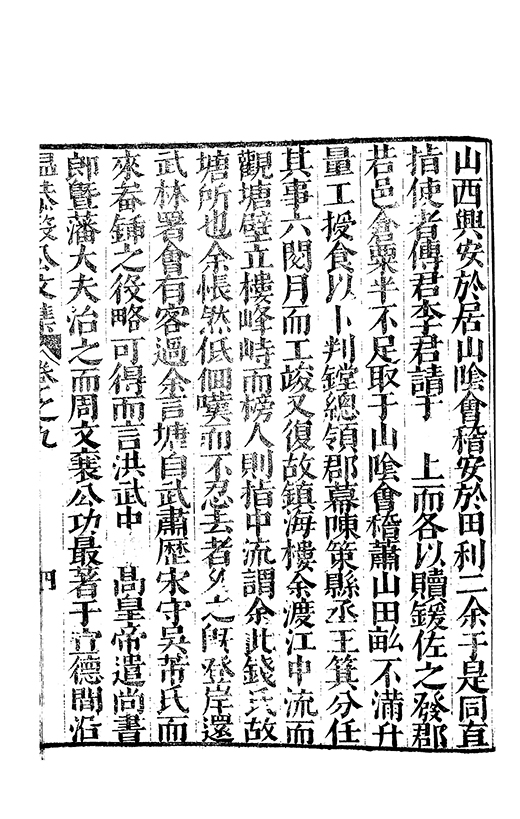 山西興安於居山陰會稽安於田利二余于是同直
指使者傅君李君請于　上而各以贖鍰佐之發郡
若邑倉粟半不足取于山陰會稽蕭山田畆不滿升
量工授食以卜判鏜總領郡幕陳策縣丞王箕分任
其事六閱月而工竣又復故鎮海樓余渡江中流而
觀塘壁立樓峰峙而榜人則指中流謂余此錢氏故
塘所也余悵然低佪嘆而不忍去者久之旣登岸還
武林署會有客過余言塘自武肅歷宋守吳芾氏而
來畚鍤之役略可得而言洪武中　高皇帝遣尚書
郎曁藩大夫治之而周文襄公功最著于宣德間沿
温恭毅公文集卷之九　四